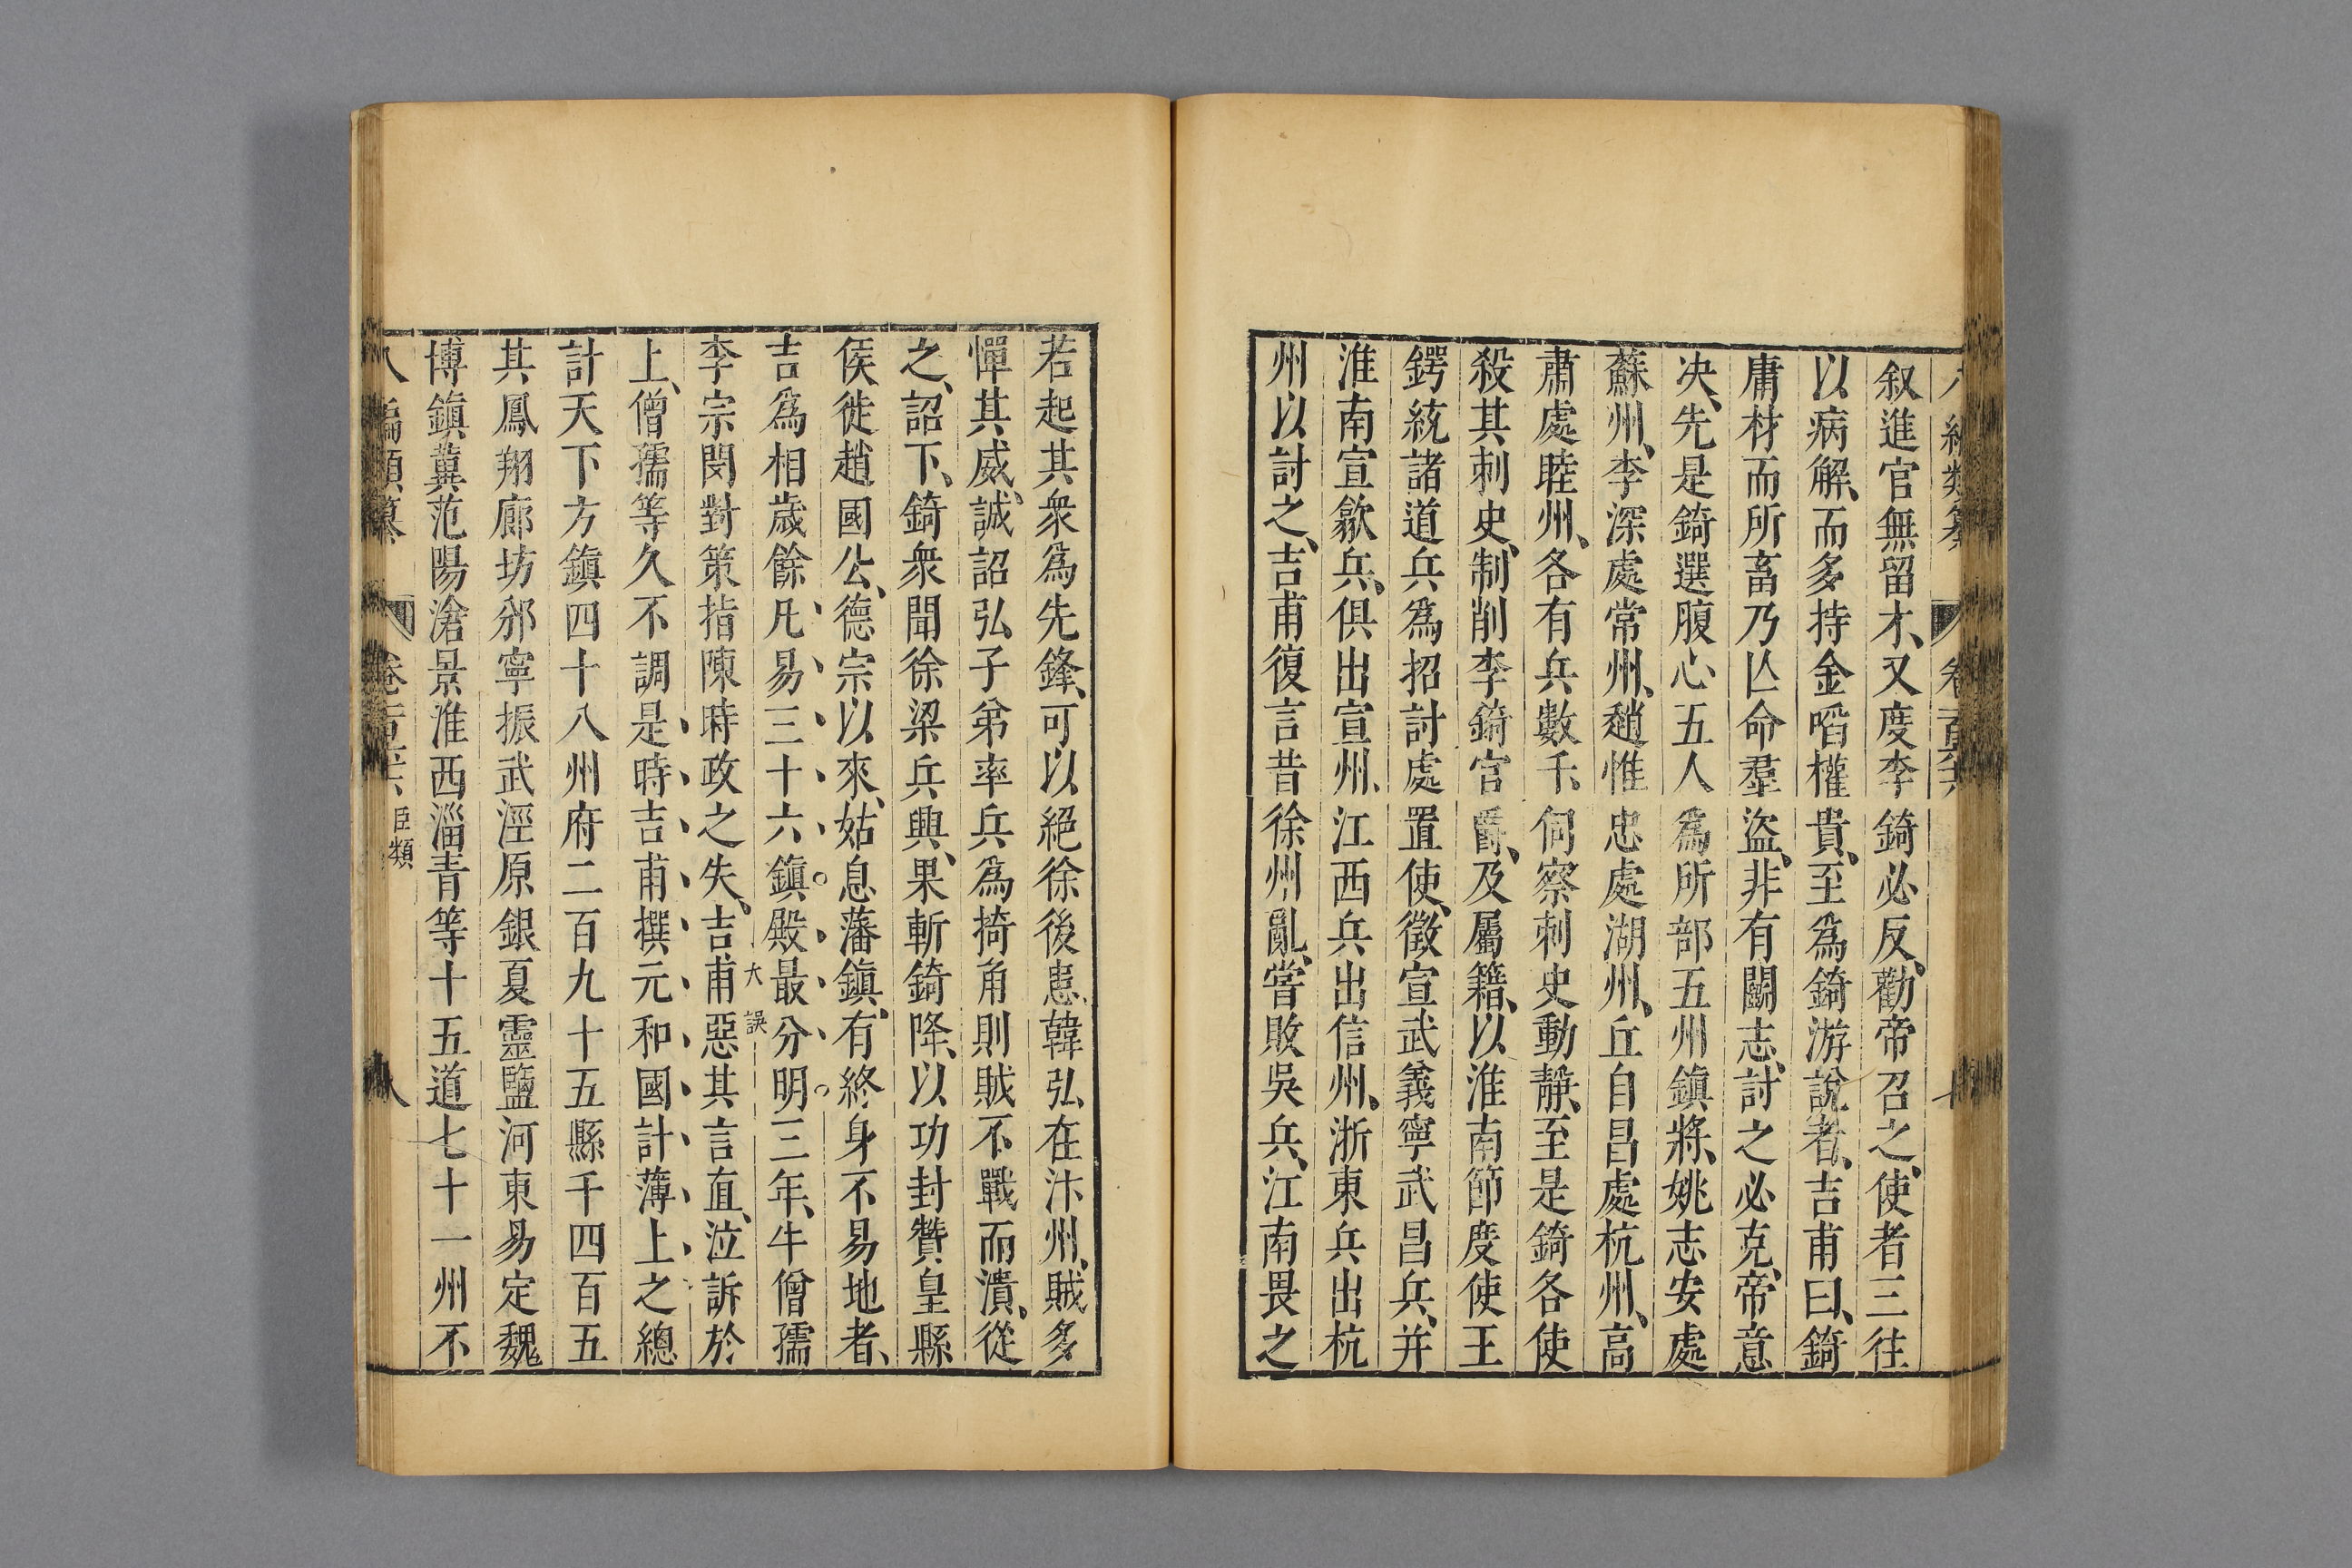 叙進官無留才、又度李錡必反、勸帝召之、使者三往
以病解、而多持金啗權貴、至爲錡游說者、吉甫曰、錡
庸材而所畜乃亾命羣盜、非有鬭志、討之必克、帝意
决、先是錡選腹心五人爲所部五州鎭將、姚志安處
蘇州、李深處常州、趙惟忠處湖州、丘自昌處杭州、高
肅處睦州、各有兵數千、伺察刺史動靜、至是錡各使
殺其刺史、制削李錡官爵、及屬籍、以淮南節度使王
鍔統諸道兵爲招討處置使、徵宣武義寧武昌兵、并
淮南宣歙兵、俱出宣州、江西兵出信州、浙東兵出杭
州以討之、吉甫復言昔徐州亂、嘗敗吳兵、江南畏之
若起其衆爲先鋒、可以絕徐後患、韓弘在汴州、賊多
憚其威、誠詔弘子弟率兵爲掎角則賊不戰而潰、從
之、詔下、錡衆聞徐梁兵興、果斬錡降、以功封贊皇縣
侯、徙趙國公、德宗以來、姑息藩鎭、有終身不易地者、
吉爲相歲餘、凡易三十六鎭殿最分明三年、牛僧孺
李宗閔對策指陳時政之失、吉甫惡其言直、泣訴於
大誤
上、僧孺等久不調是時吉甫撰元和國計薄上之總
計天下方鎭四十八州府二百九十五縣千四百五
其鳳翔鄜坊邠寧振武涇原銀夏靈鹽河東易定魏
博鎭冀范陽滄景淮西淄青等十五道七十一州不
八編類纂 卷二百三十六 臣類 八